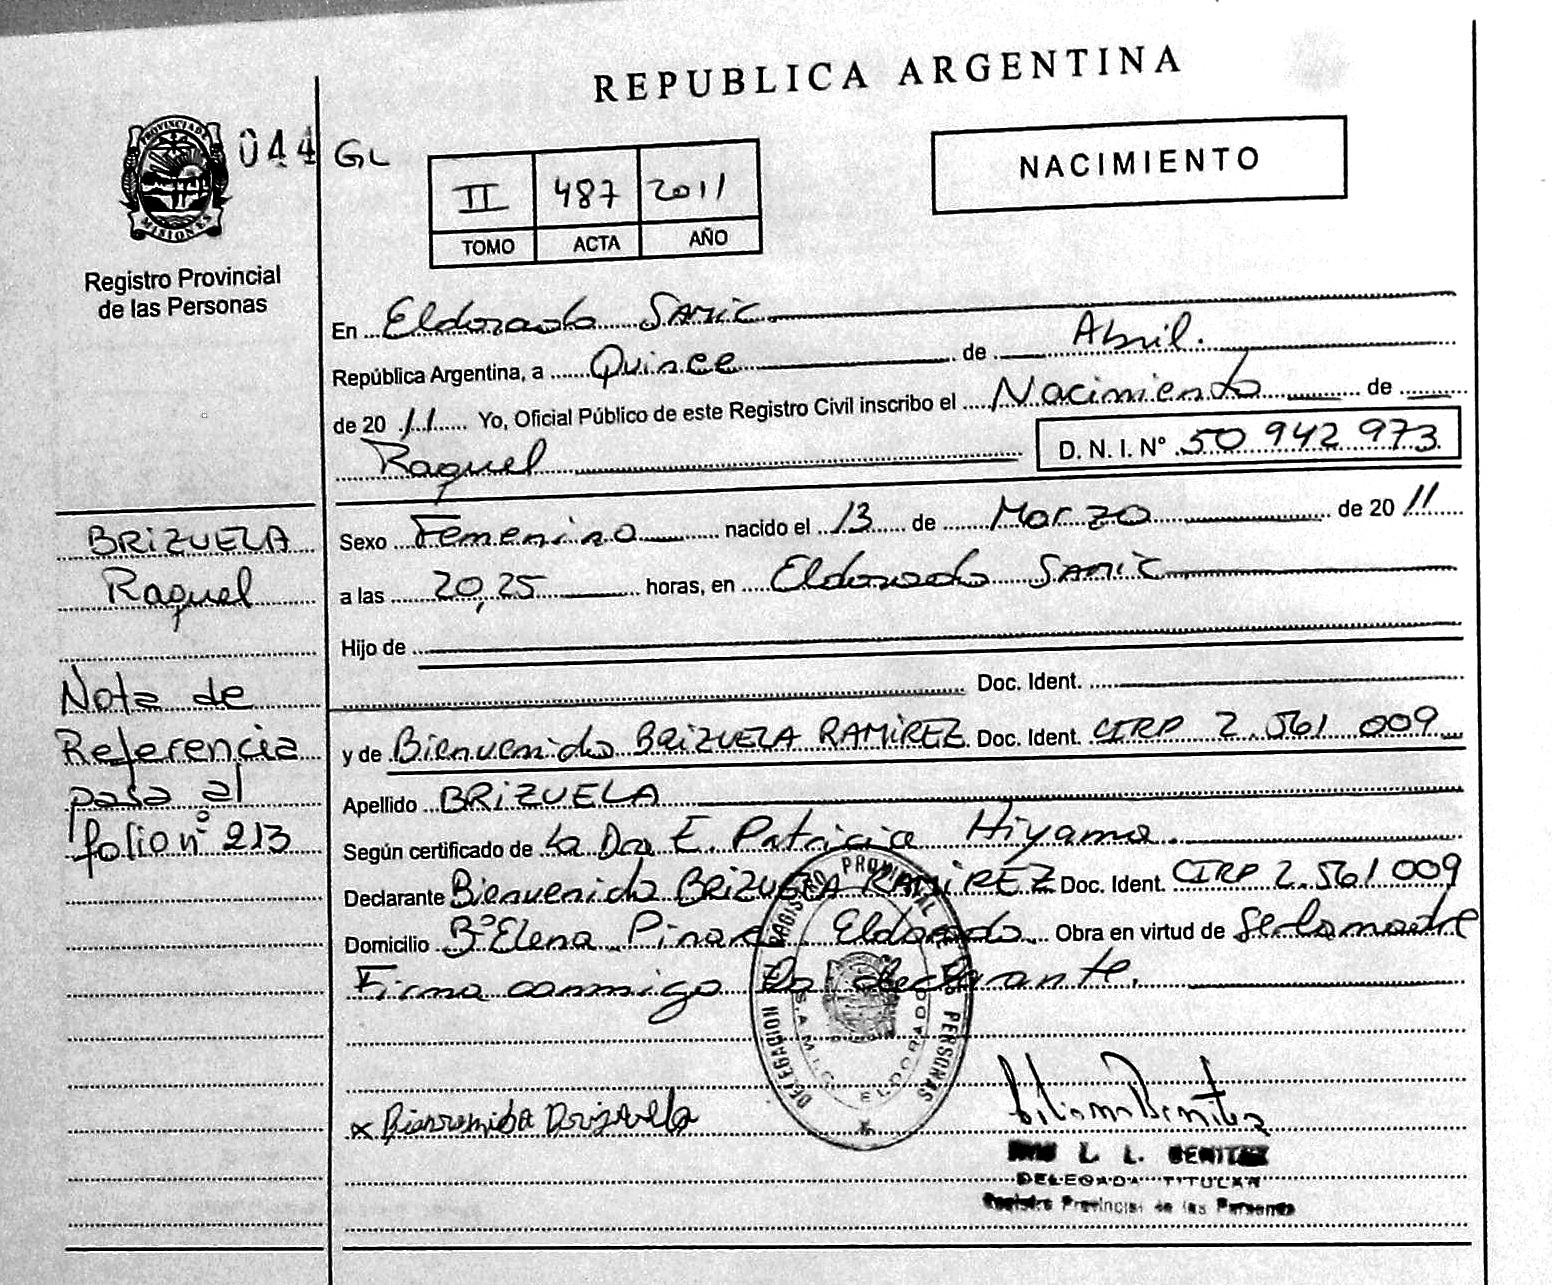 REPUBLICA ARGENTINA
PROVINCIA DE
MISIONES
044 GL
II 487 2011
TOMO ACTA AÑO
NACIMIENTO
Registro Provincial
de las Personas
En Eldorado Samic
República Argentina, a Quince de Abril.
de 2011 Yo, Oficial Público de este Registro Civil inscribo el Nacimiento de
Raquel D. N. I. Nº 50 942 973
BRIZUELA
Raquel
Nota de
Referencia
pasa al
folio nº 213
Sexo Femenino nacido el 13 de Marzo de 2011
a las 20,25 horas, en Eldorado Samic
Hijo de
Doc. Ident.
y de Bienvenida BRIZUELA RAMIREZ Doc. Ident. CIRP 2.561 009
Apellido BRIZUELA
Según certificado de la Dra E. Patricia Hiyama.
Declarante Bienvenida BRIZUELA RAMIREZ Doc. Ident. CIRP 2.561 009
Domicilio Bº Elena Pinar Eldorado Obra en virtud de Ser la madre
Firma conmigo la declarante.
DELEGACION REGISTRO PROVINCIAL DE LAS PERSONAS
SAMIC ELDORADO
x Bienvenida Brizuela
Liliana Benitez
L. L. BENITEZ
DELEGADA TITULAR
Registro Provincial de las Personas